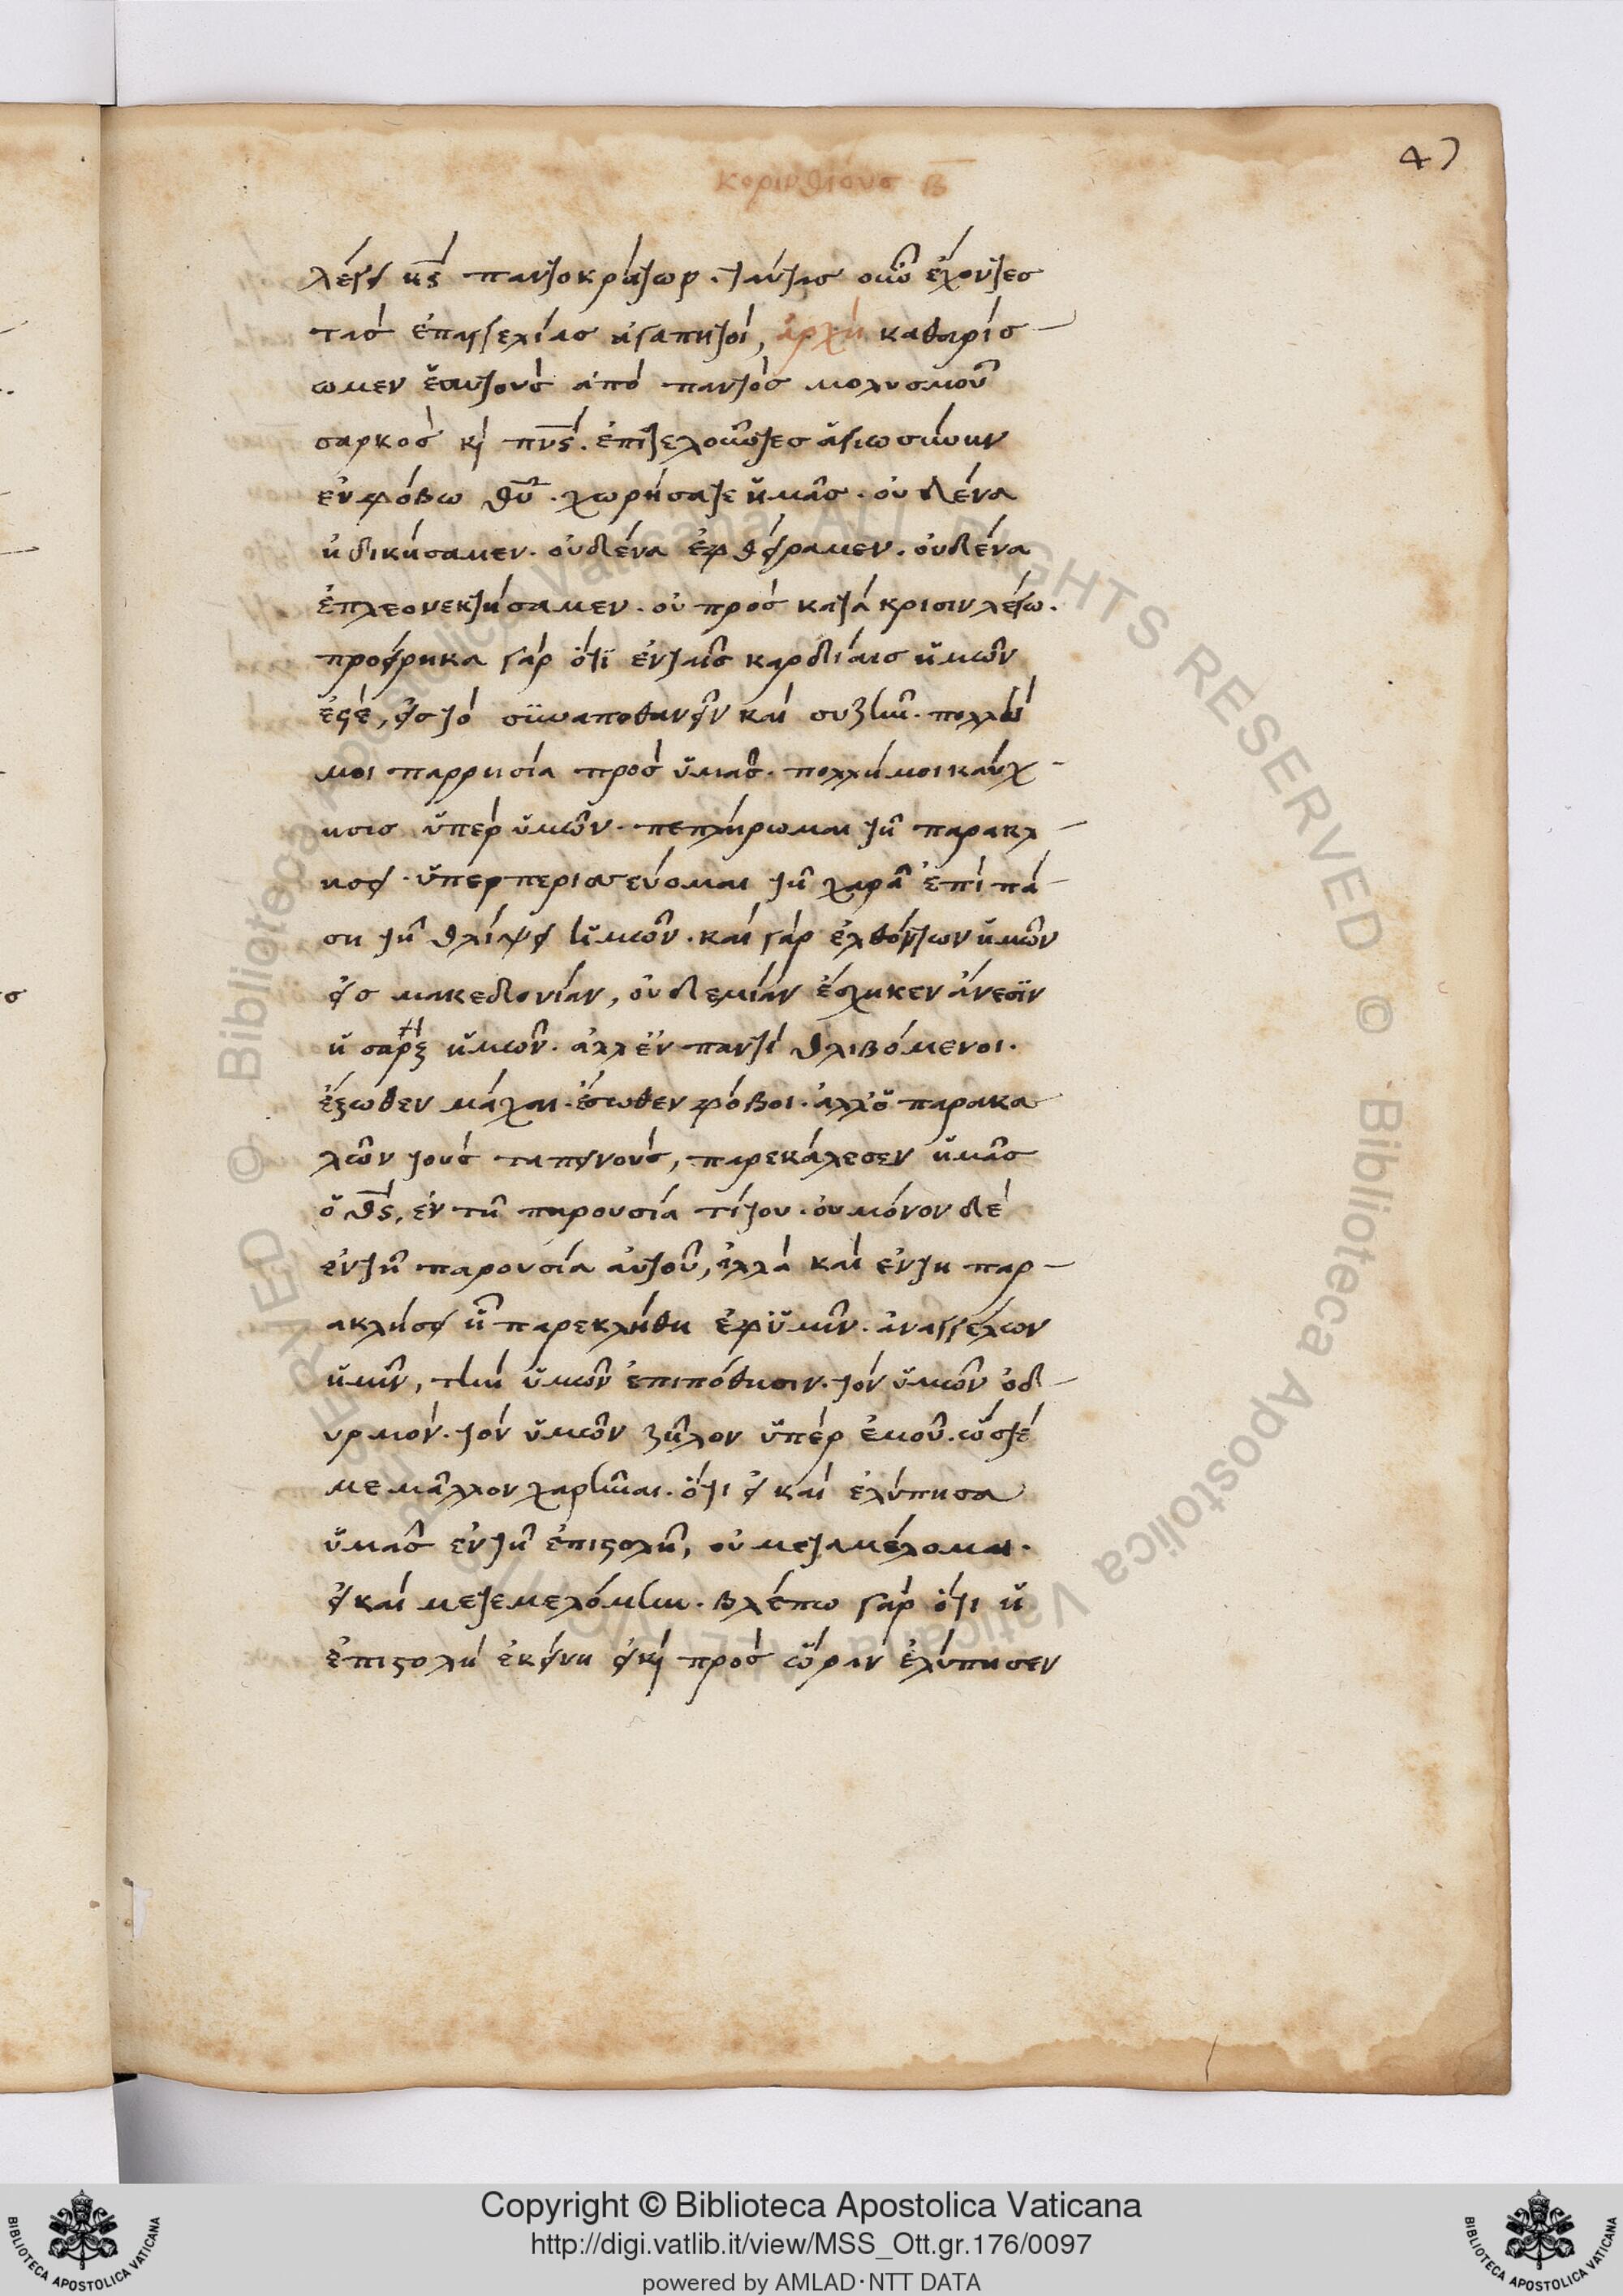 47
κορινθίους β
λέγει κς παντοκράτωρ. ταύτας οὖν ἔχοντες
τὰς ἐπαγγελίας ἀγαπητοί, ἀρχὴ καθαρίσ
ωμεν ἑαυτοὺς ἀπὸ παντὸς μολυσμοῦ
σαρκὸς κὶ πνς. ἐπιτελοῦντες ἁγιωσύνην
ἐν φόβω θῦ. χωρήσατε ἡμᾶς. οὐδένα
ἠδικήσαμεν. οὐδένα ἐφθείραμεν. οὐδένα
ἐπλεονεκτήσαμεν. οὐ πρὸς κατάκρισιν λέγω.
προείρηκα γὰρ ὅτι ἐν ταῖς καρδίαις ἡμῶν
ἐστὲ, εἰς τὸ συναποθανεῖν καὶ συζῆν. πολλὴ
μοι παρρησία πρὸς ὑμᾶς. πολλή μοι καύχ
ησις ὑπὲρ ὑμῶν. πεπλήρωμαι τῆ παρακλ
ησει. ὑπερπερισσεύομαι τῆ χαρᾶ ἐπὶ πά
ση τῆ θλίψει ἡμῶν. καὶ γὰρ ἐλθόντων ἡμῶν
εἰς μακεδονίαν, οὐδεμίαν ἔσχηκεν ἄνεσιν
ἡ σὰρξ ἡμῶν. ἀλλ ἐν παντὶ θλιβόμενοι.
ἔξωθεν μάχαι. ἔσωθεν φόβοι. ἀλλ ὁ παρακα
λῶν τοὺς ταπεινοὺς, παρεκάλεσεν ἡμᾶς
ὁ θς, ἐν τῆ παρουσία τίτου. οὐ μόνον δὲ
ἐν τῆ παρουσία αὐτοῦ, ἀλλὰ καὶ ἐν τη παρ
ακλήσει ἧ παρεκλήθη ἐφ ὑμῖν. ἀναγγέλων
ἡμῖν, τὴν ὑμῶν ἐπιπόθησιν. τὸν ὑμῶν ὀδ
υρμὸν. τὸν ὑμῶν ζῆλον ὑπὲρ ἐμοῦ. ὥστέ
με μᾶλλον χαρῆναι. ὅτι εἰ καὶ ἐλύπησα
ὑμᾶς ἐν τῆ ἐπιστολῆ, οὐ μεταμέλομαι.
εἰ καὶ μετεμελόμην. βλέπω γὰρ ὅτι ἡ
ἐπιστολὴ ἐκείνη εἰ κὶ πρὸς ὥραν ἐλύπησεν
© Biblioteca Apostolica Vaticana ALL RIGHTS RESERVED
Copyright © Biblioteca Apostolica Vaticana
http://digi.vatlib.it/view/MSS_Ott.gr.176/0097
powered by AMLAD·NTT DATA
BIBLIOTECA APOSTOLICA VATICANA
BIBLIOTECA APOSTOLICA VATICANA